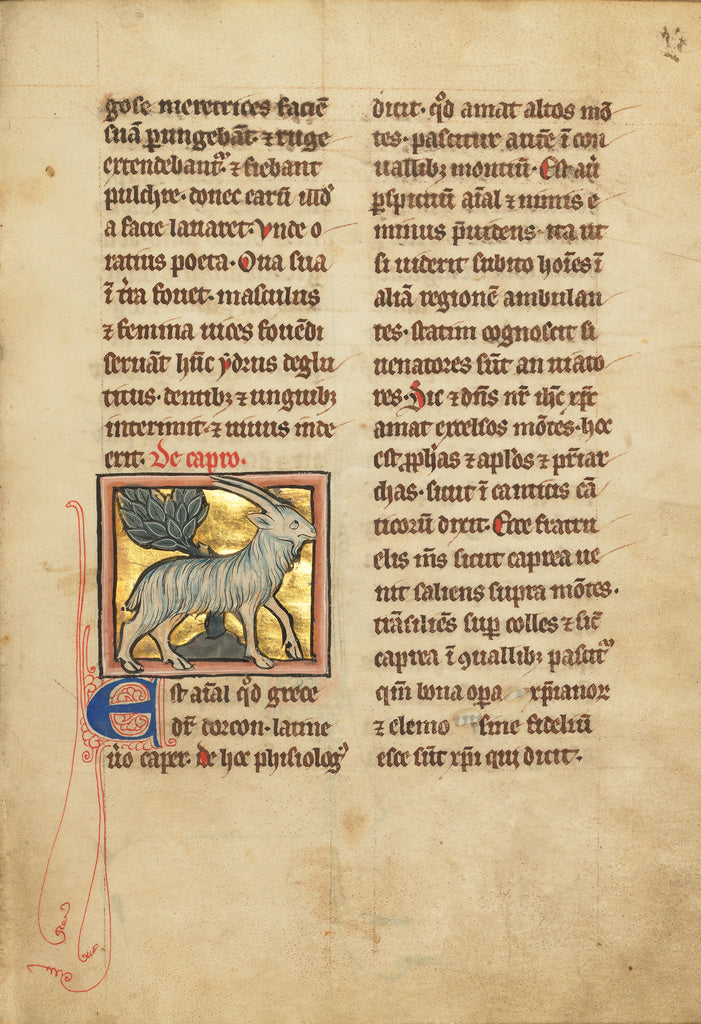 gose meretrices faciē
suā ꝑungebāt. ⁊ ruge
extendebant᷑. ⁊ fiebant
pulchre. donec earū ud̾
a facie lauaret. Vnde o
ratius poeta. Oua sua
ī t̾ra fouet. masculus
⁊ femina uices fouēdi
seruāt hūc ydrus deglu
titus. dentibꝫ ⁊ unguibꝫ
interimit. ⁊ uiuus inde
exit. De capro.
Est aīal qđ grece
dr̄ dorcon. latine
ūo caper. de hoc phisiolog᷒
dicit. qđ amat altos mō
tes. pascitur autē ī con
uallibꝫ montiū. Est aū
ꝑspicuū aīal ⁊ nimis e
minus p̄uidens. ita ut
si uiderit subito hoīes ī
aliā regionē ambulan
tes. statim cognoscit si
uenatores sūt an uiato
res. Sic ⁊ dn̄s nr̄ ih̄c xp̄c
amat excelsos mōtes. hoc
est ꝓph̄as ⁊ ap̄los ⁊ pr̄iar
chas. sicut ī canticis cā
ticorū dicit. Ecce fratru
elis m̄s sicut caprea ue
nit saliens supra mōtes.
trāsiliēs suꝑ colles ⁊ sic̄
caprea ī ꝯuallibꝫ pascit᷑
qm̄ bona opa xp̄ianor
⁊ elemo sine fideliū
esce sūt xp̄i qui dicit.